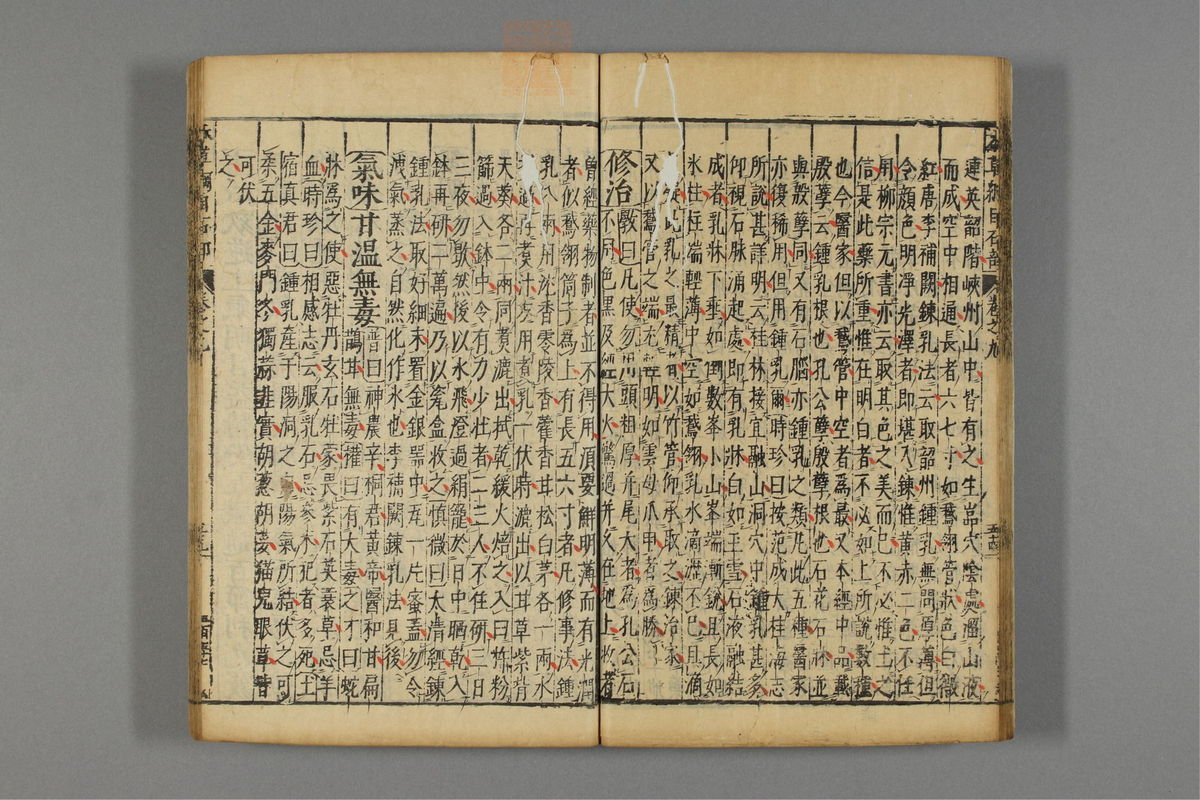 連英韶階峽州山中皆有之生嵓穴陰處溜山液
而成空中相通長者六七寸如鵝翎管狀色白微
紅唐李補闕鍊乳法云取韶州鍾乳無問厚薄但
令顔色明淨光澤者即堪入鍊惟黃赤二色不任
用柳宗元書亦云取其色之美而已不必惟土之
信是此藥所重惟在明白者不必如上所說數種
也今醫家但以鵝管中空者爲最又本經中品載
殷孽云鍾乳根也孔公孽殷孽根也石花石牀並
與殷孽同又有石腦亦鍾乳之類凡此五種醫家
亦復稀用但用鍾乳爾時珍曰按范成大桂海志
所說甚詳明云桂林接宜融山洞穴中鍾乳甚多
仰視石脉涌起處即有乳牀白如玉雪石液融結
成者乳牀下垂如倒數峯小山峯端漸銳且長如
氷柱柱端輕薄中空如鵝翎乳水滴瀝不已且滴
此乳之最精者以竹管仰承取之鍊治家
又以鵝管之端尤輕明如雲母爪甲者爲勝
修治斆曰凡使勿用頭粗厚并尾大者爲孔公石
不用色黑及經大火驚過并久在地上收者
曾經藥物制者並不得用須要鮮明薄而有光潤
者似鵝翎筒子爲上有長五六寸者凡修事法鍾
乳八兩用沉香零陵香藿香甘松白茅各一兩水
煮過再煮汁方用煮乳一伏時漉出以甘草紫背
天葵各二兩同煮漉出拭乾緩火焙之入臼杵粉
篩過入鉢中令有力少壯者二三人不住研三日
三夜勿歇然後以水飛澄過絹籠於日中晒乾入
鉢再研二萬遍乃以瓷盒收之愼微曰太淸經鍊
鍾乳法取好細末置金銀器中瓦一片蜜蓋勿令
洩氣蒸之自然化作水也李補闕鍊乳法見後
氣味甘溫無毒普曰神農辛桐君黃帝醫和甘扁
鵲甘無毒權曰有大毒之才曰蛇
牀爲之使惡牡丹玄石牡蒙畏紫石英蘘草忌羊
血時珍曰相感志云服乳石忌參朮犯者多死土
宿真君曰鍾乳產于陽洞之內陽氣所結伏之可
柔五金麥門冬獨蒜韭實胡葱胡荽猫兒眼草皆
可伏
之